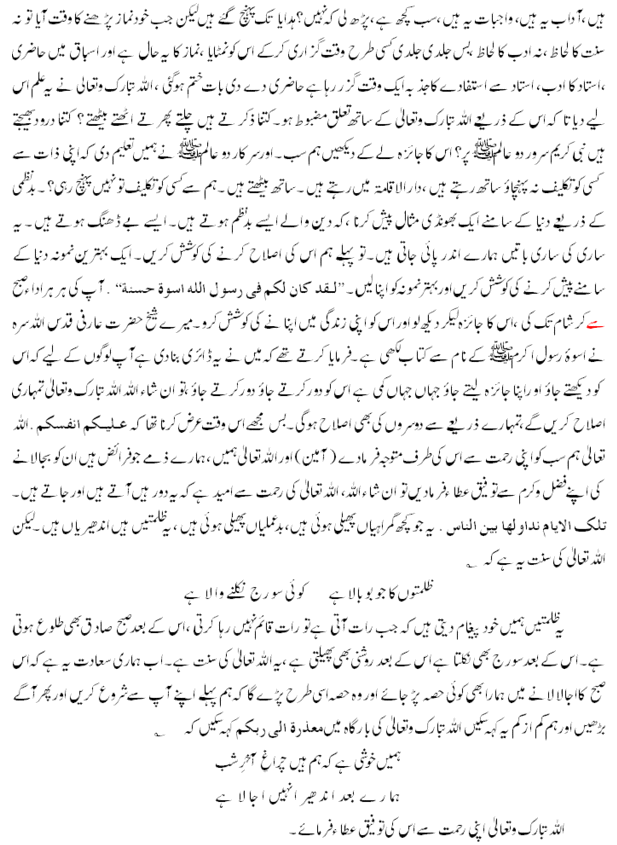 ہیں، آداب یہ ہیں، واجبات یہ ہیں، سب کچھ ہے، پڑھ لی کہ نہیں؟ ہدایا تک پہنچ گئے ہیں لیکن جب خود نماز پڑھنے کا وقت آیا تو نہ
سنت کا لحاظ، نہ ادب کا لحاظ، بس جلدی جلدی کسی طرح وقت گزاری کر کے اس کو نمٹایا، نماز کا یہ حال ہے اور اسباق میں حاضری
، استاد کا ادب، استاد سے استفادے کا جذبہ ایک وقت گزر رہا ہے حاضری دے دی بات ختم ہو گئی، اللہ تبارک وتعالیٰ نے یہ علم اس
لیے دیا تا کہ اس کے ذریعے اللہ تبارک وتعالیٰ کے ساتھ تعلق مضبوط ہو۔ کتنا ذکر تے ہیں چلتے پھر تے اٹھتے بیٹھتے؟ کتنا درود بھیجتے
ہیں نبی کریم سرور دو عالم ﷺ پر؟ اس کا جائزہ لے کے دیکھیں ہم سب۔ اور سرکار دو عالم ﷺ نے ہمیں تعلیم دی کہ اپنی ذات سے
کسی کو تکلیف نہ پہنچاؤ ساتھ رہتے ہیں، دارالاقامۃ میں رہتے ہیں۔ ساتھ بیٹھتے ہیں۔ ہم سے کسی کو تکلیف تو نہیں پہنچ رہی؟۔ بدنظمی
کے ذریعے دنیا کے سامنے ایک بھونڈی مثال پیش کرنا، کہ دین والے ایسے بدنظم ہوتے ہیں۔ ایسے بے ڈھنگ ہوتے ہیں۔ یہ
ساری کی ساری باتیں ہمارے اندر پائی جاتی ہیں۔ تو پہلے ہم اس کی اصلاح کرنے کی کوشش کریں۔ ایک بہترین نمونہ دنیا کے
سامنے پیش کرنے کی کوشش کریں اور بہتر نمونہ کو اپنالیں۔ ”لقد کان لکم فی رسول الله اسوة حسنة“۔ آپ کی ہر ہر اداء صبح
سے کر شام تک کی، اس کا جائزہ لیکر دیکھ لو اور اس کو اپنی زندگی میں اپنا نے کی کوشش کرو۔ میرے شیخ حضرت عارفی قدس اللہ سرہ
نے اسوۂ رسول اکرم ﷺ کے نام سے کتاب لکھی ہے۔ فرمایا کرتے تھے کہ میں نے یہ ڈائری بنا دی ہے آپ لوگوں کے لیے کہ اس
کو دیکھتے جاؤ اور اپنا جائزہ لیتے جاؤ جہاں جہاں کمی ہے اس کو دور کرتے جاؤ دور کرتے جاؤ، تو ان شاء اللہ اللہ تبارک وتعالیٰ تمہاری
اصلاح کریں گے، تمہارے ذریعے سے دوسروں کی بھی اصلاح ہو گی۔ بس مجھے اس وقت عرض کرنا تھا کہ علیکم انفسکم۔ اللہ
تعالیٰ ہم سب کو اپنی رحمت سے اس کی طرف متوجہ فرمادے (آمین) اور اللہ تعالیٰ ہمیں، ہمارے ذمے جو فرائض ہیں ان کو بجالانے
کی اپنے فضل و کرم سے توفیق عطاء فرمادیں تو ان شاء اللہ، اللہ تعالیٰ کی رحمت سے امید ہے کہ یہ دور ہیں آتے ہیں اور جاتے ہیں۔
تلک الایام نداولها بین الناس۔ یہ جو کچھ گمراہیاں پھیلی ہوئی ہیں، بدعملیاں پھیلی ہوئی ہیں، یہ ظلمتیں ہیں اندھیر یاں ہیں۔ لیکن
اللہ تعالیٰ کی سنت یہ ہے کہ ؎
ظلمتوں کا جو بو بالا ہے کوئی سورج نکلنے والا ہے
یہ ظلمتیں ہمیں خود پیغام دیتی ہیں کہ جب رات آتی ہے تو رات قائم نہیں رہا کرتی، اس کے بعد صبح صادق بھی طلوع ہوتی
ہے۔ اس کے بعد سورج بھی نکلتا ہے اس کے بعد روشنی بھی پھیلتی ہے، یہ اللہ تعالیٰ کی سنت ہے۔ اب ہماری سعادت یہ ہے کہ اس
صبح کا اجالا لانے میں ہمارا بھی کوئی حصہ پڑ جائے اور وہ حصہ اسی طرح پڑے گا کہ ہم پہلے اپنے آپ سے شروع کریں اور پھر آگے
بڑھیں اور ہم کم از کم یہ کہہ سکیں اللہ تبارک وتعالیٰ کی بارگاہ میں معذرة الی ربکم کہہ سکیں کہ ؎
ہمیں خوشی ہے کہ ہم ہیں چراغِ آخرِ شب
ہمارے بعد اندھیر انہیں اجالا ہے
اللہ تبارک وتعالیٰ اپنی رحمت سے اس کی توفیق عطاء فرمائے۔